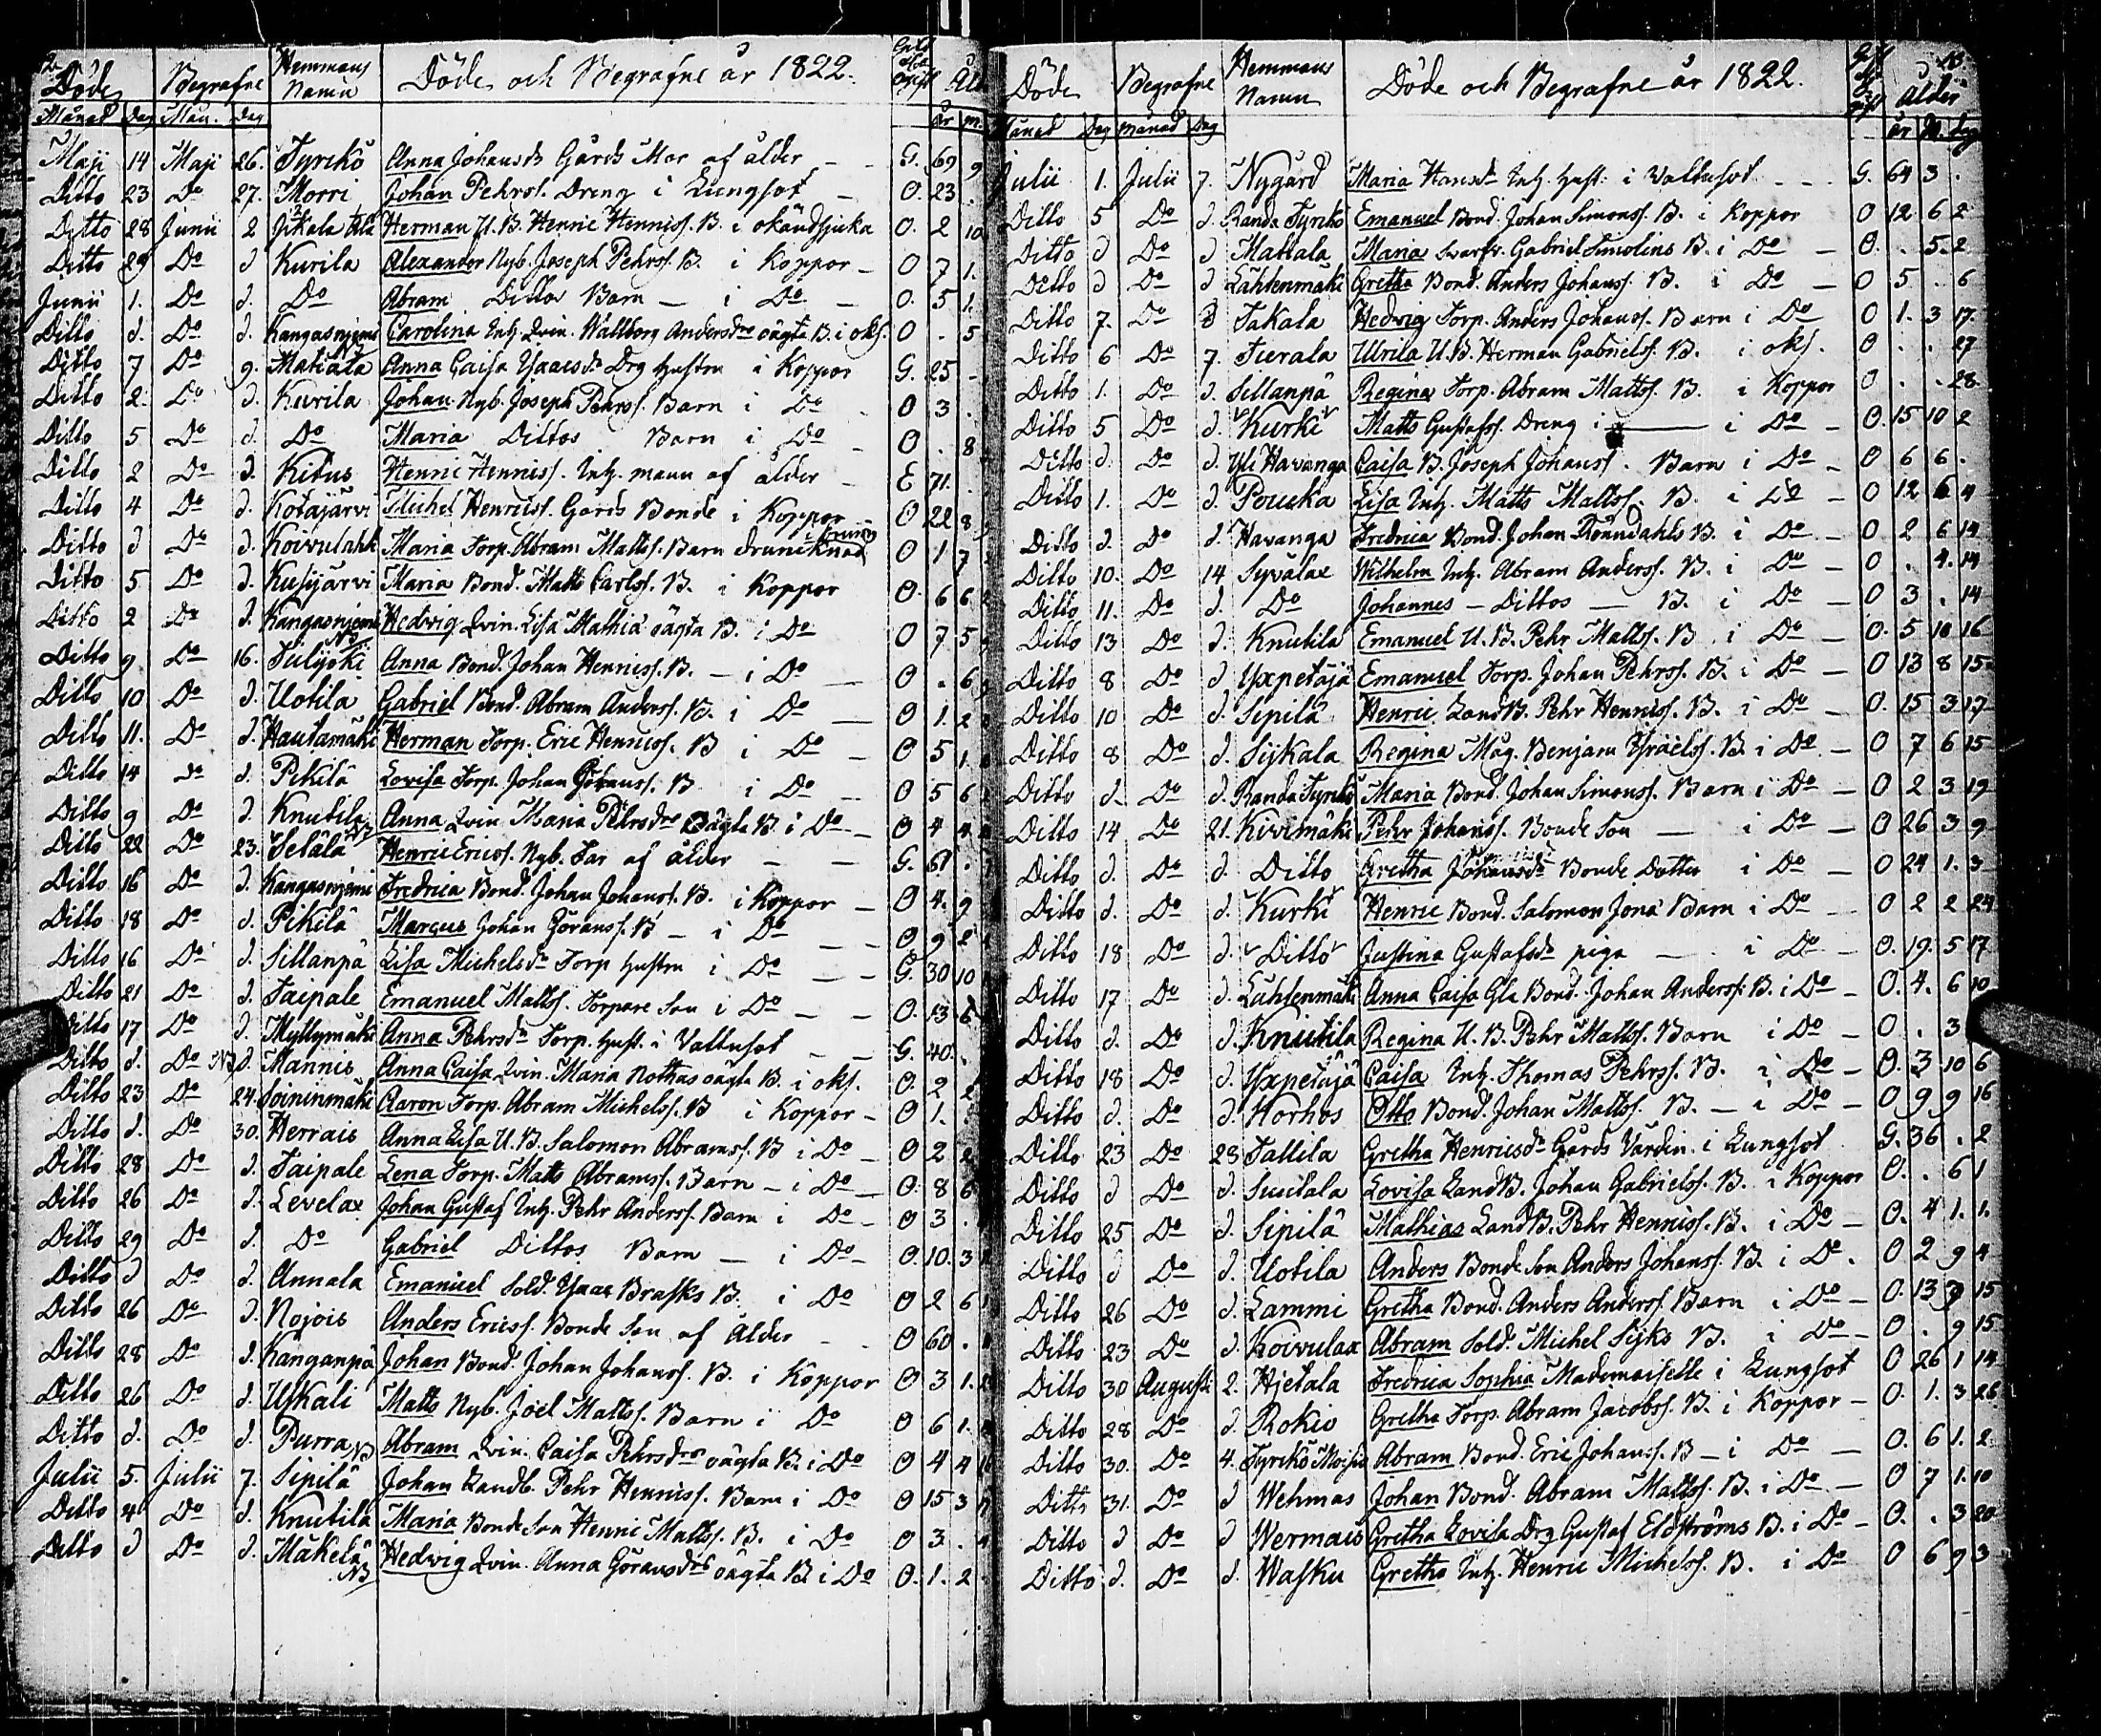 Döde Begrafne Hemmans Namn Döde och Begrafne år 1822. Gift Ogift Åld
Månad Dag Mån. Dag år m.
Maji 14 Maji 26. Tyrikö Anna Johansdr Gårds Mor af ålder - - G. 69 9
Ditto 23 Do 27. Morri Johan Pehrss. Dreng i Lungsot - O. 23.
Ditto 28 Junii 2 Herman U. B. Henric Henricss. B. i okändsjuka O. 2 10
Ditto 29 Do d Kurila Alexander Nyb. Joseph Pehrss. B. i Koppor - O 7 1.
Junii 1. Do d. Do Abram Dittos Barn - i Do - O. 5 1.
Ditto d. Do d. Kangasnjemi Carolina Inh. Qvin. Wallborg Andersdrs oägta B. i oks. O . 5
Ditto 7 Do 9. Matiala Anna Caisa Isaacsdr Drg hustru i Koppor G. 25 -
Ditto 2. Do d. Kurila Johan Nyb. Joseph Pehrss. Barn i Do - O 3 .
Ditto 5 Do d. Do Maria Dittos Barn i Do O . 8
Ditto 2 Do d. Kitus Henric Henricss. Inh. mann af ålder - E 71.
Ditto 4 Do d. Kotajärvi Michel Henricss. Gårds Bonde i Koppor O 22 8
Ditto d Do d. Koivulaht Maria Torp. Abram Mattss. Barn drunknad i brunn O 1 7
Ditto 5 Do d. Kusijärvi Maria Bond. Matts Carlss. B. i Koppor O. 6 6
Ditto 2 Do d. Kangasnjemi Hedwig Qvin. Lisa Mathiæ oägta B. i Do O 7 5
Ditto 9 Do 16. Julijoki Anna Bond. Johan Henricss. B. - i Do - O . 6
Ditto 10 Do d. Uotila Gabriel Bond. Abram Anderss. B. i Do - O 1. 2
Ditto 11. Do d. Hautamäki Herman Torp. Eric Henricss. B i Do - O 5 1.
Ditto 14 Do d. Pikilä Lovisa Torp. Johan Göranss. B. i Do - O 5 6
Ditto 9 Do d. Knutila Anna Qvin Maria Pehrsdrs Oägta B. i Do - O 4 4
Ditto 22 Do 23. Setälä Henric Ericss. Nyb. Far af ålder - - G. 61 .
Ditto 16 Do d. Kangasnjemi Fredrica Bond. Johan Johanss. B. i Koppor - O 4. 9
Ditto 18 Do d. Pikilä Marcus Johan Göranss. B - i Do - O 9 2
Ditto 16 Do d. Sillanpä Lisa Michelsdr Torp hustru i Do - - G. 30 10
Ditto 21 Do d. Taipale Emanuel Mattss. Torpare Son i Do - - O. 13 6
Ditto 17 Do d. Myllymäki Anna Pehrsdr Torp. hust. i Vattusot - - G. 40.
Ditto d. Do NB d. Mannis Anna Caisa Qvin. Maria Nothas oägta B. i oks. O. 2
Ditto 23 Do 24. Soininmäki Aaron Torp. Abram Michelss. B i Koppor - O 1.
Ditto d. Do 30. Herrais Anna Lisa U. B. Salomon Abramss. B i Do - O 2 2
Ditto 28 Do d. Taipale Lena Torp. Matts Abramss. Barn - i Do - O. 8 6
Ditto 26 Do d. Levelax Johan Gustaf Inh. Pehr Anderss. Barn i Do - O 3 .
Ditto 29 Do d. Do Gabriel Dittos Barn - i Do - O. 10. 3
Ditto d Do d. Annala Emanuel Sold. Isaac Brasks B. i Do O 2 6
Ditto 26 Do d. Nojois Anders Ericss. Bonde Son af Ålder - O 60 .
Ditto 28 Do d. Kanganpä Johan Bond. Johan Johanss. B. i Koppor O 3 1.
Ditto 26 Do d. Uskali Matts Nyb. Joel Mattss. Barn i Do O 6 1.
Ditto d. Do d. Purra Abram Qvin. Caisa Pehrsdrs oägta B. i Do O 4 4
Julii 5. Julii 7. Sipilä Johan Landb. Pehr Henricss. Barn i Do O 15 3
Ditto 4 Do d. Knutila Maria Bonde Son Henric Mattss. B. i Do O 3 .
Ditto d Do d. Mäkelä NB Hedwig Qvin. Anna Göransdrs oägta B. i Do O. 1. 2
Döde Begrafne Hemmans Namn Döde och Begrafne år 1822. Ålder
Månad Dag månad Dag år M. dag
Julii 1. Julii 7. Nygård Maria Hansdr Inh. hust. i Vattusot - - - G. 64 3 .
Ditto 5 Do d. Randa Tyrikö Emanuel Bond. Johan Simonss. B. i Koppor O 12 6 2
Ditto d Do d Mattala Maria Svarfv. Gabriel Simolins B. i Do - O. . 5. 2
Ditto d Do d Lähtenmäki Gretha Bond. Anders Johanss. B. i Do - O 5 . 6
Ditto 7. Do d Takala Hedwig Torp. Anders Johanss. Barn i Do O 1. 3 17.
Ditto 6 Do 7. Tierala Ulrica U. B. Herman Gabrielss. B. i oks. O . . 27
Ditto 1. Do d. Sillanpä Regina Torp. Abram Mattss. B. i Koppor O . . 28.
Ditto 5 Do d. Kurki Matts Gustafss. Dreng i - i Do - O. 15 10 2
Ditto d. Do d. Yli Havanga Caisa B. Joseph Johanss. Barn i Do - O 6 6 .
Ditto 1. Do d. Poucka Lisa Inh. Matts Mattss. B. i Do - O 12 6 4
Ditto d. Do d. Havanga Fredrica Bond. Johan Rönndahls B. i Do - O 2 6 14
Ditto 10. Do 14 Syvälax Wilhelm Inh. Abram Anderss. B. i Do - O . 4. 14
Ditto 11. Do d. Do Johannes - Dittos - B. i Do - O 3 . 14
Ditto 13 Do d. Knutila Emanuel U. B. Pehr Mattss. B. i Do - O. 5 10 16
Ditto 8 Do d Yxpetäjä Emanuel Torp. Johan Pehrss. B. i Do - O 13 8 15
Ditto 10 Do d. Sipilä Henric LandB. Pehr Henricss. B. i Do - O. 15 3 17
Ditto 8 Do d. Sijkala Regina Måg. Benjam Israelss. B. i Do - O 7 6 15
Ditto d. Do d. Randa Tyrikö Maria Bond. Johan Simonss. Barn i Do - O 2 3 19
Ditto 14 Do 21. Kivimäki Pehr Johanss. Bonde Son - i Do - O 26 3 9
Ditto d. Do d. Ditto Gretha Johansdr Bonde Dotter i Do - O 24 1. 3
Ditto d. Do d. Kurki Henric Bond. Salomon Jonæ Barn i Do - O 2 2 24
Ditto 18 Do d. Ditto Justina Gustafsdr piga - i Do - O. 19. 5 17
Ditto 17 Do d. Lähtenmäki Anna Caisa Gla Bond. Johan Anderss. B. i Do - O. 4. 6 10
Ditto d. Do d. Knutila Regina U. B. Pehr Mattss. Barn i Do - O . 3
Ditto 18 Do d. Yxpetäjä Caisa Inh. Thomas Pehrss. B. i Do - O. 3 10 6
Ditto d. Do d. Horhos Otto Bond. Johan Mattss. B. - i Do - O 9 9 16
Ditto 23 Do 28 Tallila Gretha Henricsdr Gårds Värdin. i Lungsot G. 36 . 2
Ditto d Do d. Suutala Lovisa LandB. Johan Gabrielss. B. i Koppor O. . 6 1
Ditto 25 Do d. Sipilä Mathias LandB. Pehr Henricss. B. i Do - O. 4 1. 1.
Ditto d Do d. Uotila Anders Bonde Son Anders Johanss. B. i Do. O 2 9 4
Ditto 26 Do d. Lammi Gretha Bond. Anders Anderss. Barn i Do - O. 13 9 15
Ditto 23 Do d. Koivulax Abram Sold. Michel Sijks B. i Do - O . 9 15
Ditto 30 Augusti 2. Hjetala Fredrica Sophia Mademoiselle i Lungsot O 26 1 14
Ditto 28 Do d Rokio Gretha Torp. Abram Jacobss. B. i Koppor - O. 1. 3 26
Ditto 30. Do 4. Tyrikö Moisio Abram Bond. Eric Johanss. B - i Do - O. 6 1. 2.
Ditto 31. Do d Wehmas Johan Bond. Abram Mattss. B. i Do - O 7 1. 10
Ditto d Do d Wermais Gretha Lovisa Drg Gustaf Eldströms B. i Do - O. . 3 20
Ditto d. Do d. Wasku Gretha Inh. Henric Michelss. B. i Do O 6 9 3